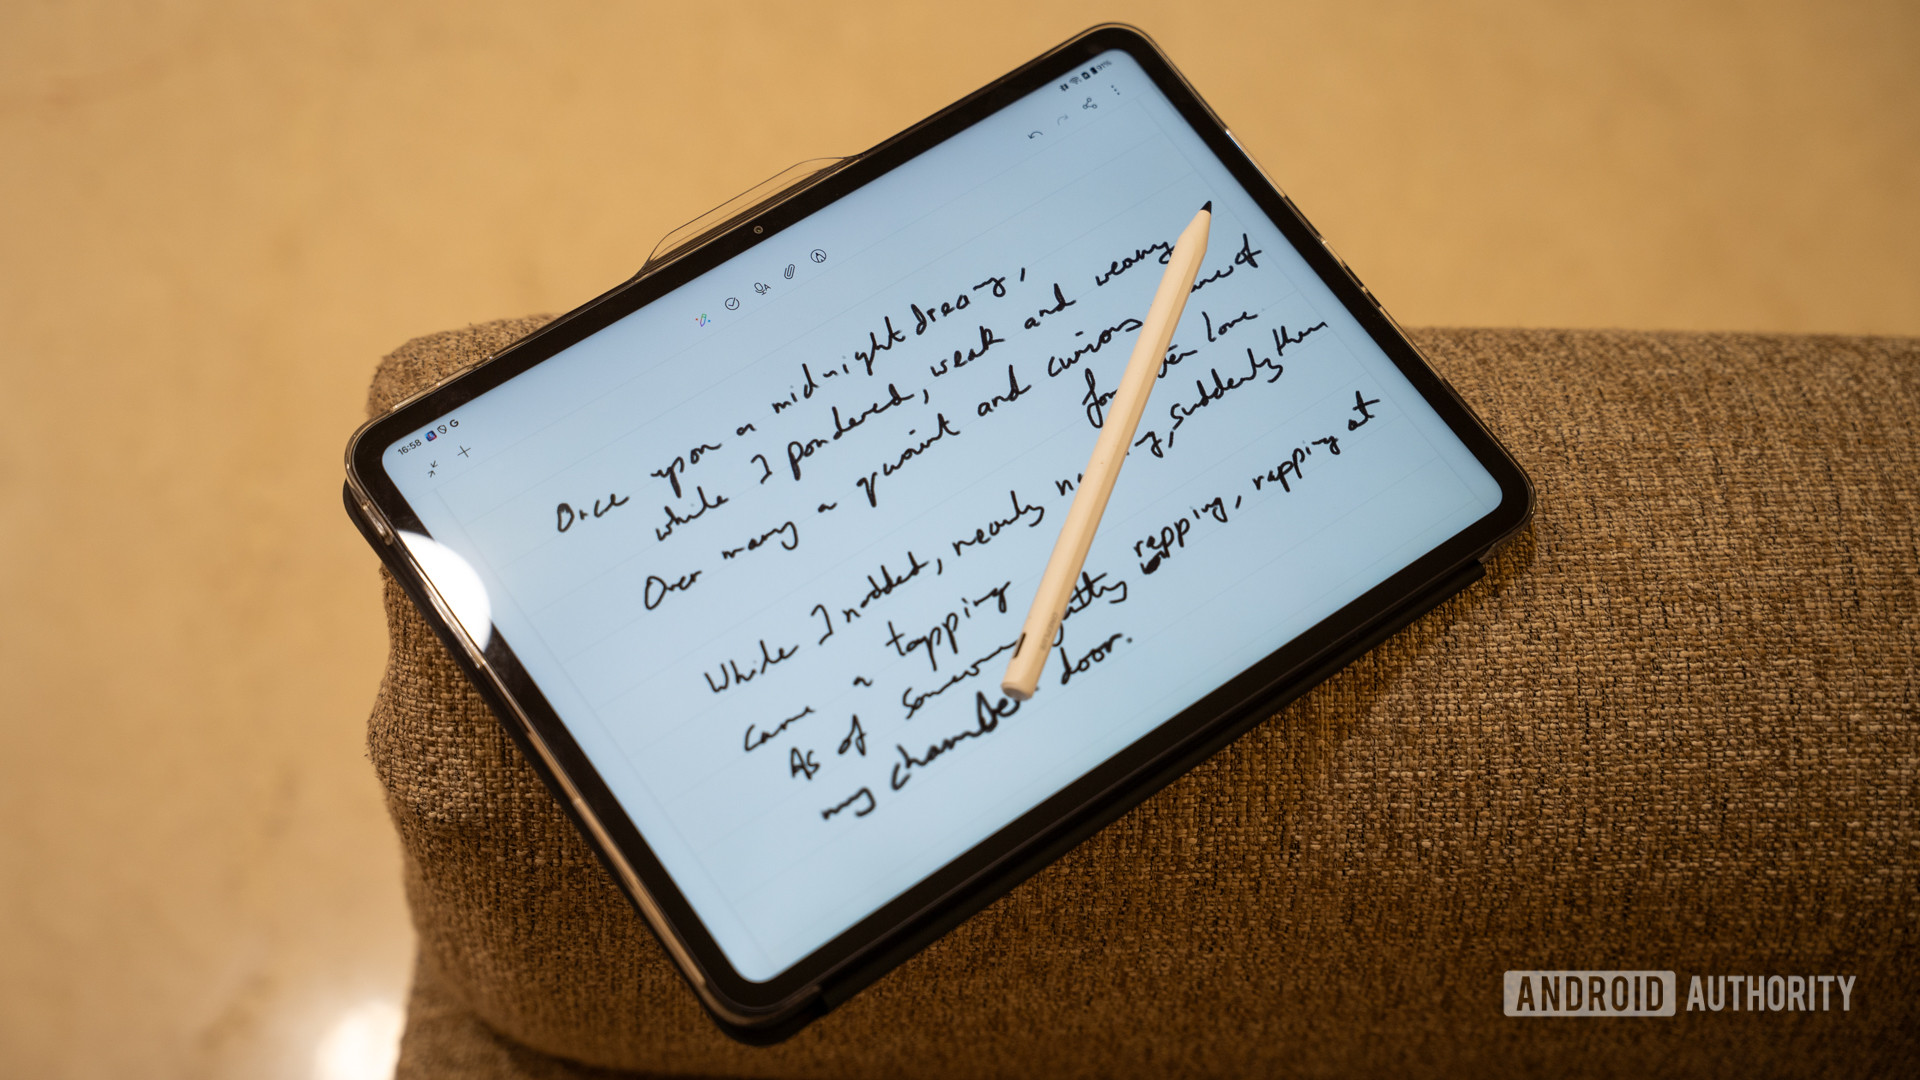 16:58
91%
Once upon a midnight dreary,
while I pondered, weak and weary
Over many a quaint and curious of
love
While I nodded, nearly suddenly there
came a tapping
As of rapping, rapping at
my chamber door.
ANDROID AUTHORITY